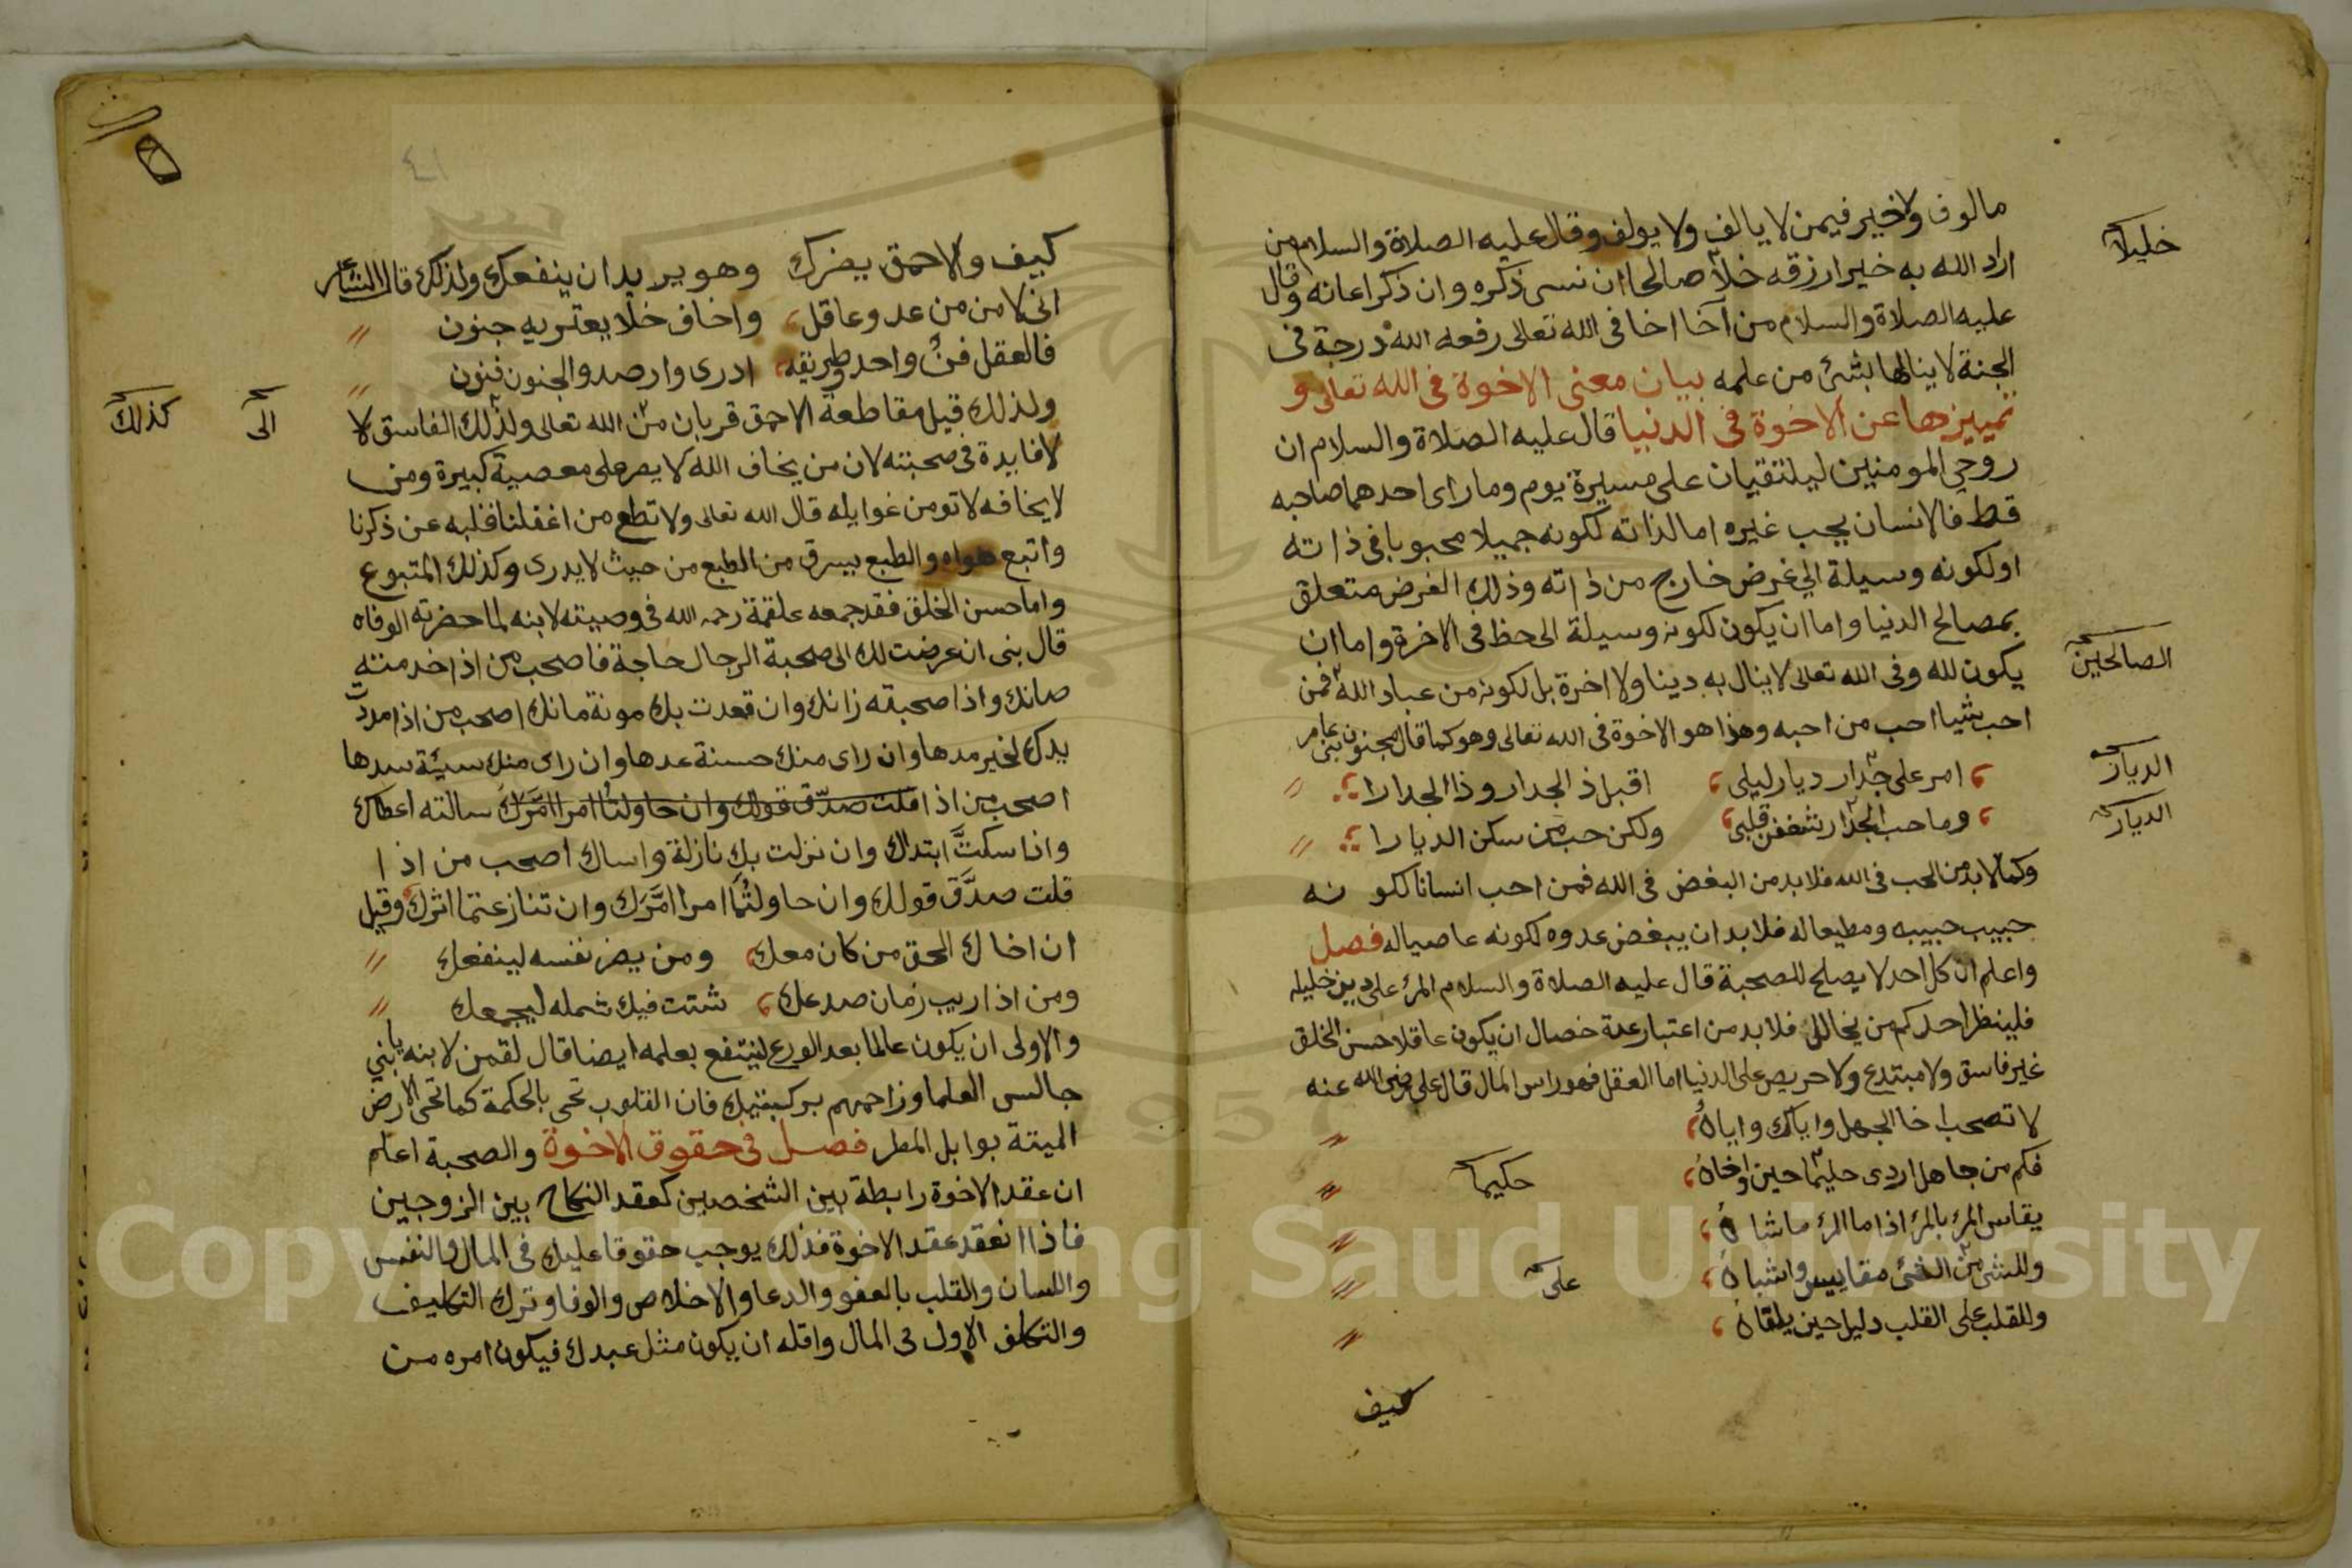 مالوف ولاخير فيمن لا يالف ولا يولف وقال عليه الصلاة والسلام من
خليلا
اراد الله به خيرا رزقه خلا صالحا ان نسى ذكره وان ذكر اعانه وقال
عليه الصلاة والسلام من آخا اخا فى الله تعالى رفعه الله درجة فى
الجنة لا ينالها بشئ من علمه بيان معنى الاخوة فى الله تعالى و
تمييزها عن الاخوة فى الدنيا قال عليه الصلاة والسلام ان
روحي المومنين ليلتقيان على مسيرة يوم وما راى احدهما صاحبه
قط فالانسان يحب غيره اما لذاته لكونه جميلا محبوبا فى ذاته
او لكونه وسيلة الي غرض خارج من ذاته وذلك الغرض متعلق
بمصالح الدنيا واما ان يكون لكونه وسيلة الى حظ فى الاخرة واما ان
يكون لله وفى الله تعالى لا ينال به دينا ولا اخرة بل لكونه من عباد الله فمن
الصالحين
احب شيا احب من احبه وهذا هو الاخوة فى الله تعالى وهو كما قال مجنون بنى عامر
امر على جدار ديار ليلى اقبل ذ الجدار وذا الجدارا
الديار
وما حب الجدار شغفن قلبى ولكن حب من سكن الديارا
الديار
وكما لا بد من الحب فى الله فلا بد من البغض فى الله فمن احب انسانا لكو نه
حبيب حبيبه ومطيعا له فلا بد ان يبغض عدوه لكونه عاصيا له فصل
واعلم ان كل احد لا يصلح للصحبة قال عليه الصلاة والسلام المرئ على دين خليله
فلينظر احدكم من يخالل فلا بد من اعتبار عدة خصال ان يكون عاقلا حسن الخلق
غير فاسق ولا مبتدع ولا حريص على الدنيا اما العقل فهو راس المال قال على رضى الله عنه
لا تصحب اخا الجهل واياك واياهُ
فكم من جاهل اردى حليما حين اوخاهُ
حكيما
يقاس المرئ بالمرئ اذا ما المرئ ماشاهُ
وللشئ من الشئ مقاييس واشباهُ
على
وللقلب على القلب دليل حين يلقاهُ
كيف
٤١
كيف والاحمق يضرك وهو يريد ان ينفعك ولذلك قال الشاعر
انى لامن من عدو عاقل واخاف خلا يعتريه جنون
فالعقل فنٌ واحد وطريقه ادرى وارصد والجنون فنون
ولذلك قيل مقاطعة الاحمق قربان من الله تعالى ولذلك الفاسق لا
الى
كذلك
لا فايدة فى صحبته لان من يخاف الله لا يصر على معصية كبيرة ومن
لا يخافه لا تومن غوايله قال الله تعالى ولا تطع من اغفلنا قلبه عن ذكرنا
واتبع هواه والطبع يسرق من الطبع من حيث لا يدرى وكذلك المتبوع
واما حسن الخلق فقد جمعه علقمة رحمه الله فى وصيته لابنه لما حضرته الوفاه
قال بنى ان عرضت لك الى صحبة الرجال حاجة فاصحب من اذا خدمته
صانك واذا صحبته زانك وان قعدت بك مونة مانك اصحب من اذا مددت
يدك لخير مدها وان راى منك حسنة عدها وان راى منك سيئة سدها
اصحب من اذا قلت صدّق قولك وان حاولتما امرا امّرك سالته اعطاك
واذا سكتَّ ابتداك وان نزلت بك نازلة واساك اصحب من اذا
قلت صدَّق قولك وان حاولتُما امرا امَّرَك وان تنازعتما اثرك وقيل
ان اخاك الحق من كان معك ومن يضر نفسه لينفعك
ومن اذا ريب زمان صدعك شتت فيك شمله ليجمعك
والاولى ان يكون عالما بعد الورع لينتفع بعلمه ايضا قال لقمن لابنه يا بني
جالس العلما وزاحمهم بركبتيك فان القلوب تحى بالحكمة كما تحى الارض
الميتة بوابل المطر فصل فى حقوق الاخوة والصحبة اعلم
ان عقد الاخوة رابطة بين الشخصين كعقد النكاح بين الزوجين
فاذا انعقد عقد الاخوة فذلك يوجب حقوقا عليك فى المال والنفس
واللسان والقلب بالعفو والدعا والاخلاص والوفا وترك التكليف
والتكلف الاول فى المال واقله ان يكون مثل عبدك فيكون امره من
Copyright © King Saud University
1957